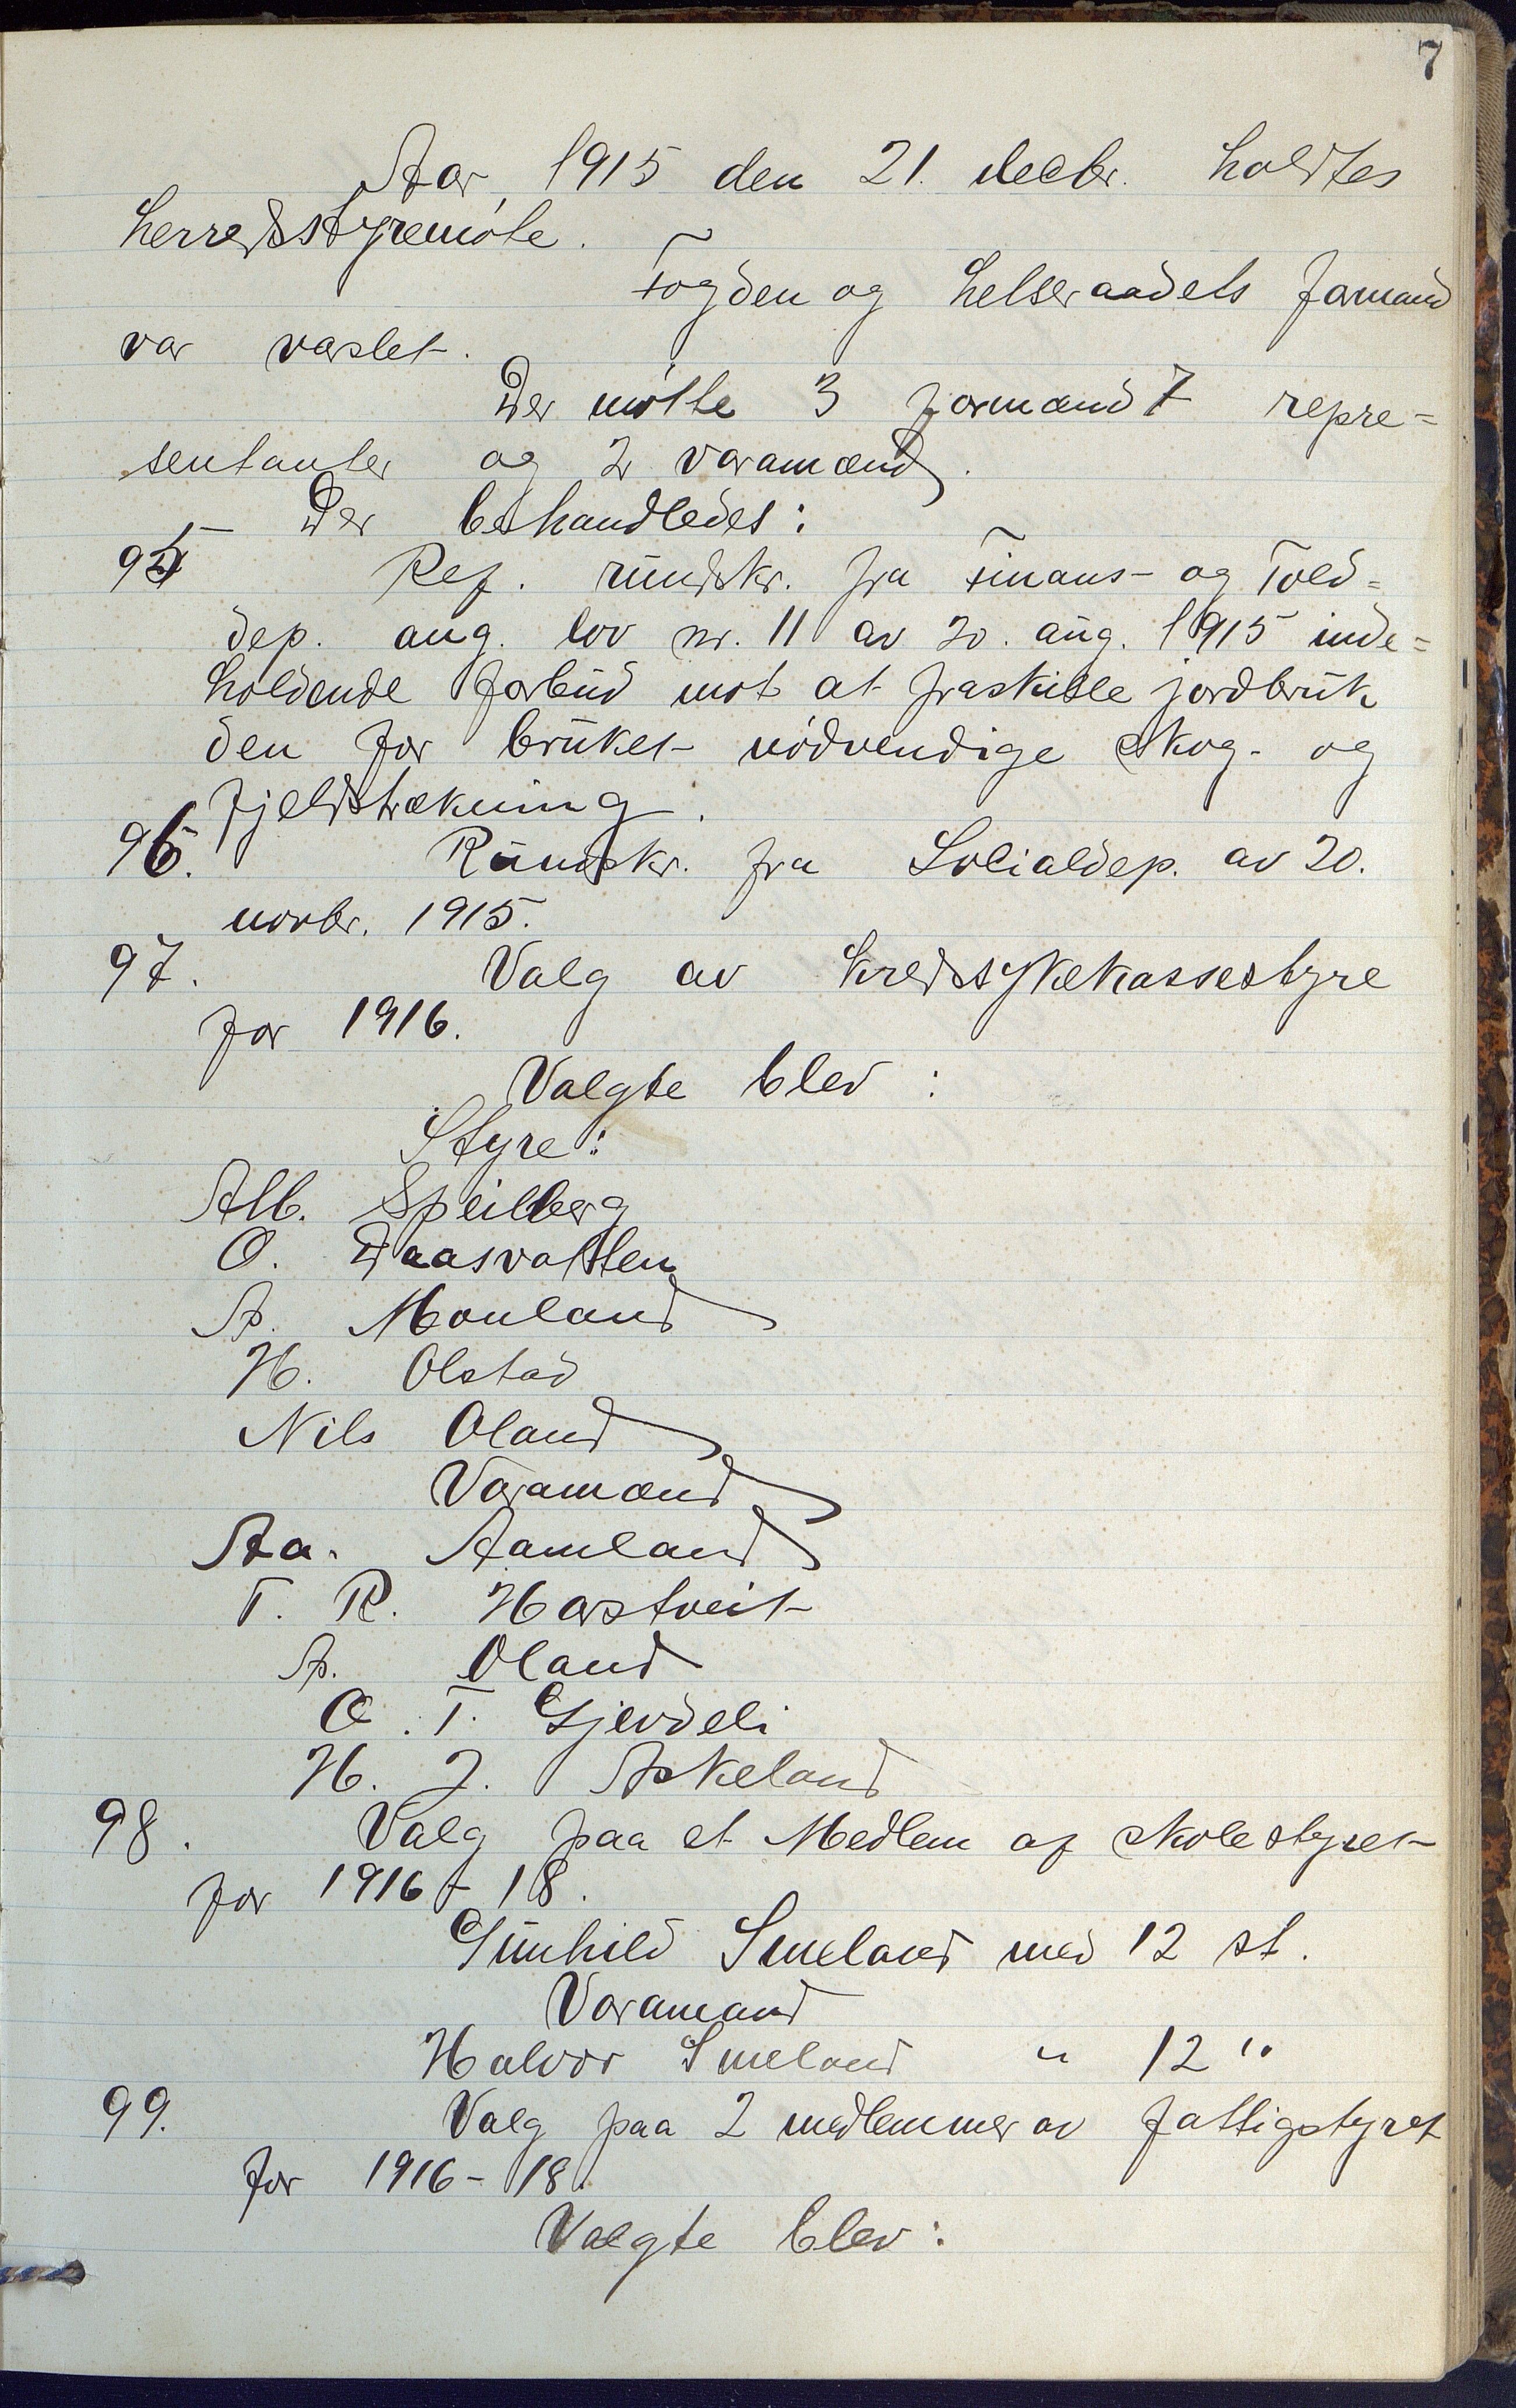 7
Aar 1915 den 21. decbr. holdtes
herredsstyremöte.
Fogden og helseraadets formand
var varslet.
Der mötte 3 formænd 7 repre=
sentanter og 2 varamænd.
Der behandledes:
95 Ref. rundskr. fra Finans- og Told=
dep. ang. lov nr. 11 av 20. aug. 1915 inde=
holdende forbud mot at fraskille jordbruk
den for bruket nödvendige skog- og
fjeldstrækning.
96. Rundskr. fra Socialdep. av 20.
novbr. 1915.
97. Valg av kredssykekassestyre
for 1916.
Valgte blev :
Styre:
Alb. Speilberg
O. Daasvatten
A. Mouland
H. Olstad
Nils Oland
Varamænd
Aa. Aamland
T. R. Harstveit
A. Oland
O. T. Gjevdeli
H. J. Askeland
98. Valg paa et Medlem af skolestyret
for 1916 - 18.
Gunhild Smeland med 12 st.
Varamand
Halvor Smeland " 12 "
99. Valg paa 2 medlemmer av fattigstyret
for 1916 - 18.
Valgte blev: